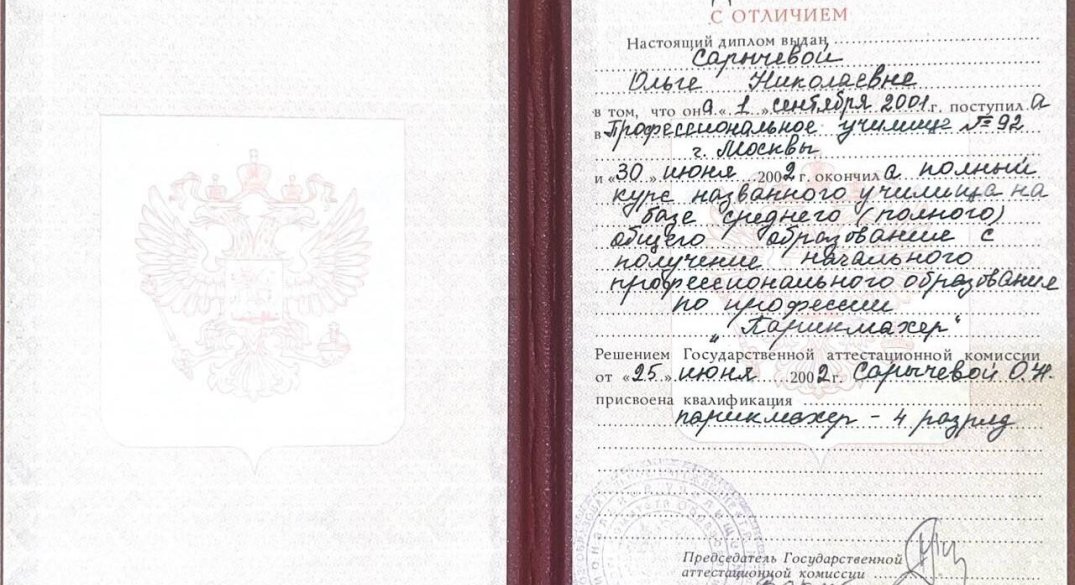 С ОТЛИЧИЕМ
Настоящий диплом выдан
Сарычевой
Ольге Николаевне
в том, что она «1» сентября 2001 г. поступила
в Профессиональное училище № 92
г. Москвы
и «30» июня 2002 г. окончила полный
курс названного училища на
базе среднего (полного)
общего образование с
получение начального
профессионального образование
по профессии
"Парикмахер"
Решением Государственной аттестационной комиссии
от «25» июня 2002 г. Сарычевой О.Н.
присвоена квалификация
парикмахер - 4 разряд
Председатель Государственной
аттестационной комиссии